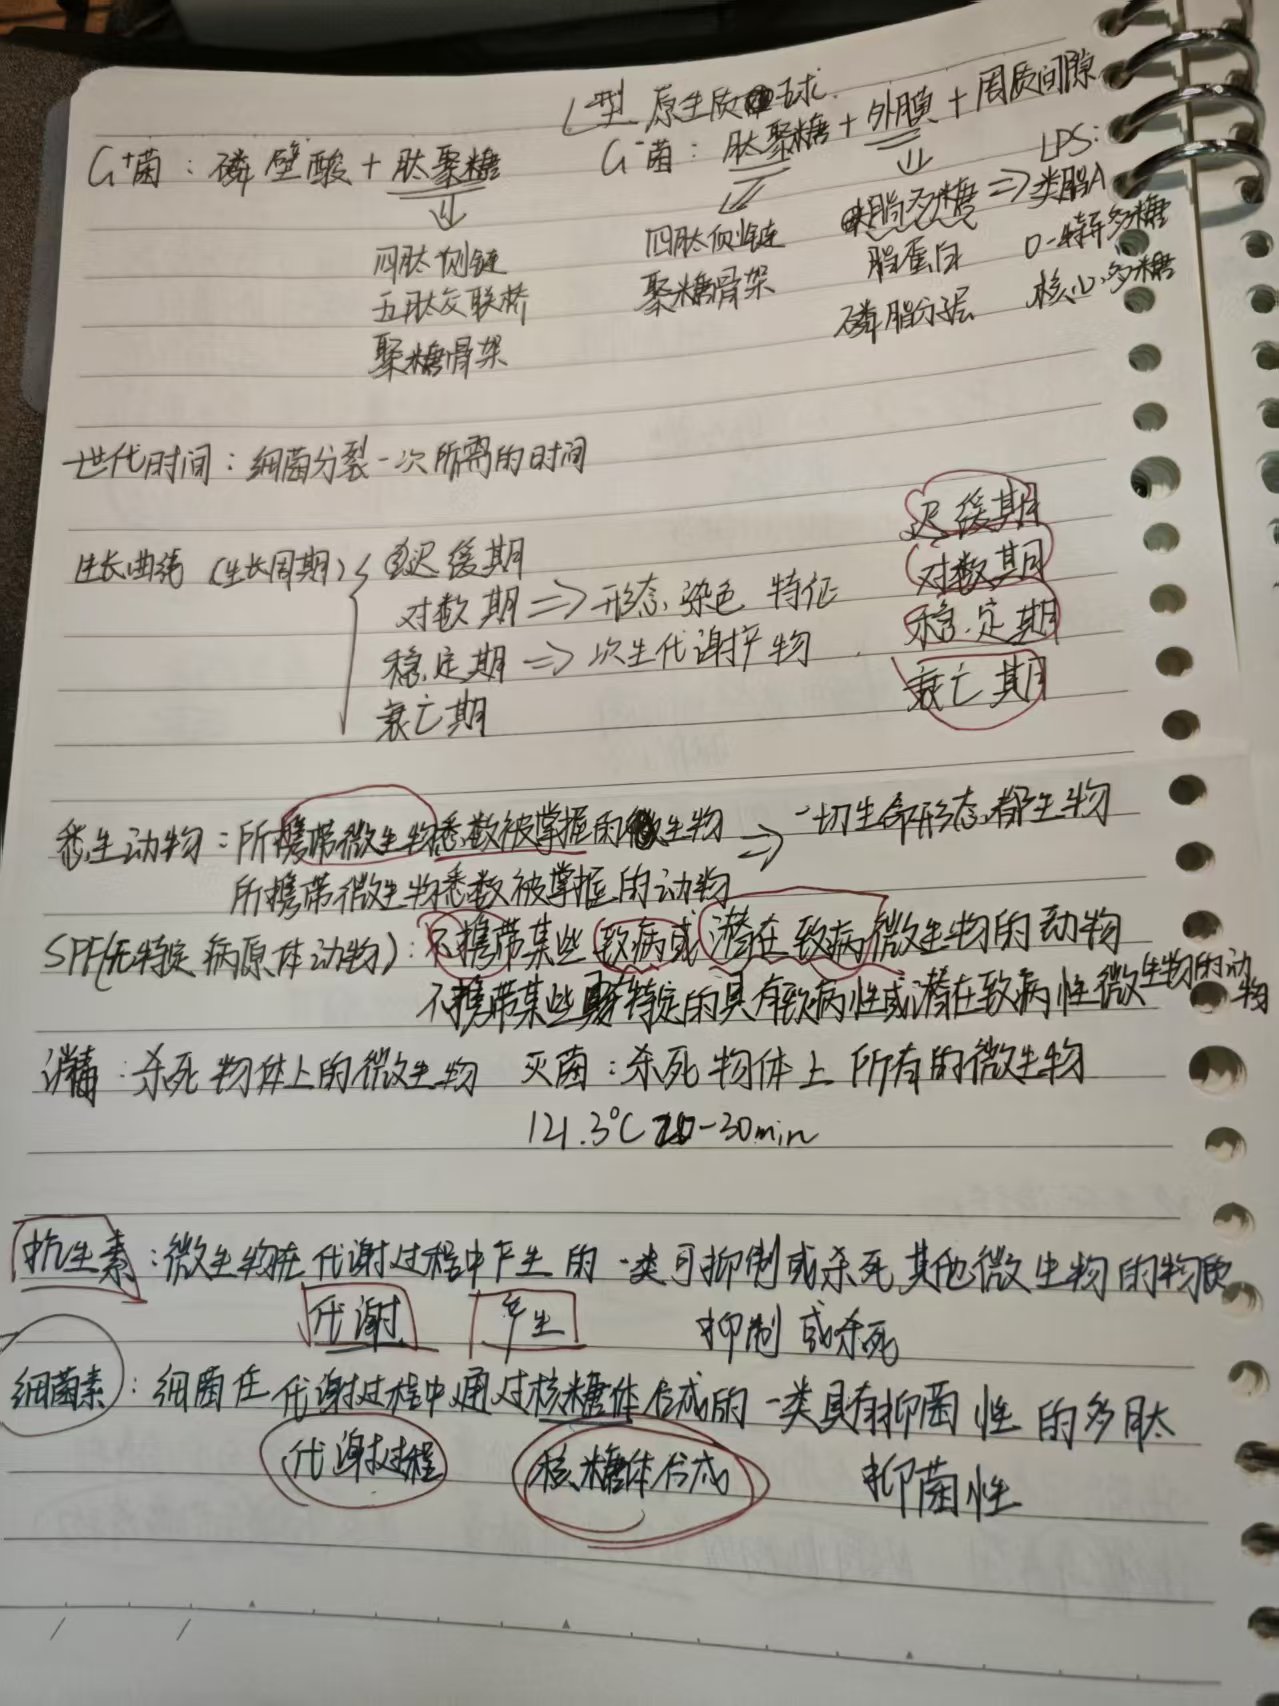 L型 原生质球
G⁺菌：磷壁酸＋肽聚糖 G⁻菌：肽聚糖＋外膜＋周质间隙
四肽侧链
五肽交联桥
聚糖骨架
四肽侧链
聚糖骨架
脂多糖 ⇒ LPS：类脂A
脂蛋白 O-特异多糖
磷脂分层 核心多糖
世代时间：细菌分裂一次所需的时间
生长曲线（生长周期）{ 迟缓期 迟缓期
对数期 ⇒ 形态、染色 特征 对数期
稳定期 ⇒ 次生代谢产物 稳定期
衰亡期 衰亡期
悉生动物：所携带微生物悉数被掌握的微生物 ⇒ 一切生命形态、都生物
所携带微生物悉数被掌握的动物
SPF(无特定病原体动物)：不携带某些致病或潜在致病微生物的动物
不携带某些特定的具有致病性或潜在致病性微生物的动物
消毒：杀死物体上的微生物 灭菌：杀死物体上所有的微生物
121.3℃ 20-30min
抗生素：微生物在代谢过程中产生的一类可抑制或杀死其他微生物的物质
代谢 产生 抑制或杀死
细菌素：细菌在代谢过程中通过核糖体合成的一类具有抑菌性的多肽
代谢过程 核糖体合成 抑菌性